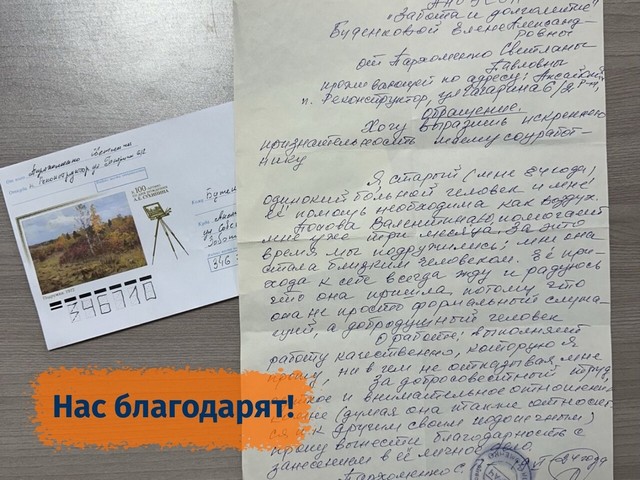 "Забота и долголетие"
Буденковой Елене Александ-
ровны
от Пархоменко Светланы
Павловны
проживающей по адресу: Аксайский
п. Реконструктор, ул Гагарина 6/2
обращение.
Хочу выразить искреннюю
признательность моему соцработ-
нику
Я старый (мне 84 года),
одинокий больной человек и мне
её помощь необходима как воздух.
Попова Валентина помогает
мне уже три месяца. За это
время мы подружились; мне она
стала близким человеком. Её при-
хода к себе всегда жду и радуюсь
что она пришла, потому что
она не просто формальный служа-
щий, а добродушный человек
О работе: выполняет
работу качественно, которую я
прошу, ни в чем не отказывая мне
За добросовестный труд,
и внимательное отношение
мне (думаю она также относит-
ся и к другим своим подопечным)
прошу вынести благодарность с
занесением в её личное дело.
Пархоменко С 24 года
100
А.С.СТЕПАНОВА
346710
346
Нас благодарят!